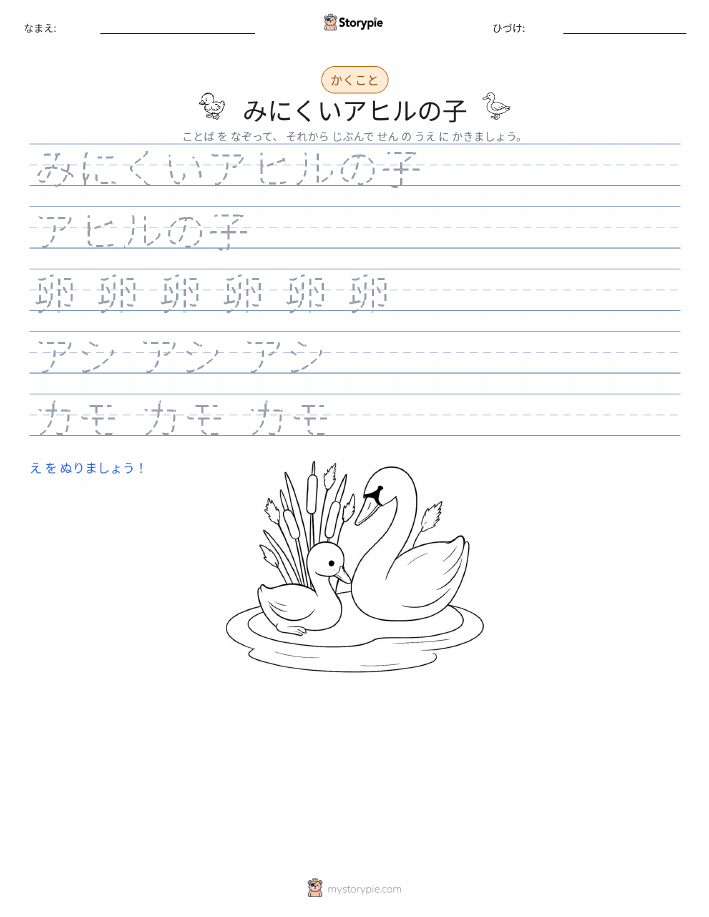 なまえ:
Storypie
ひづけ:
かくこと
みにくいアヒルの子
ことば を なぞって、 それから じぶんで せん の うえ に かきましょう。
みにくいアヒルの子
アヒルの子
卵 卵 卵 卵 卵 卵
アシ アシ アシ
カモ カモ カモ
え を ぬりましょう！
mystorypie.com